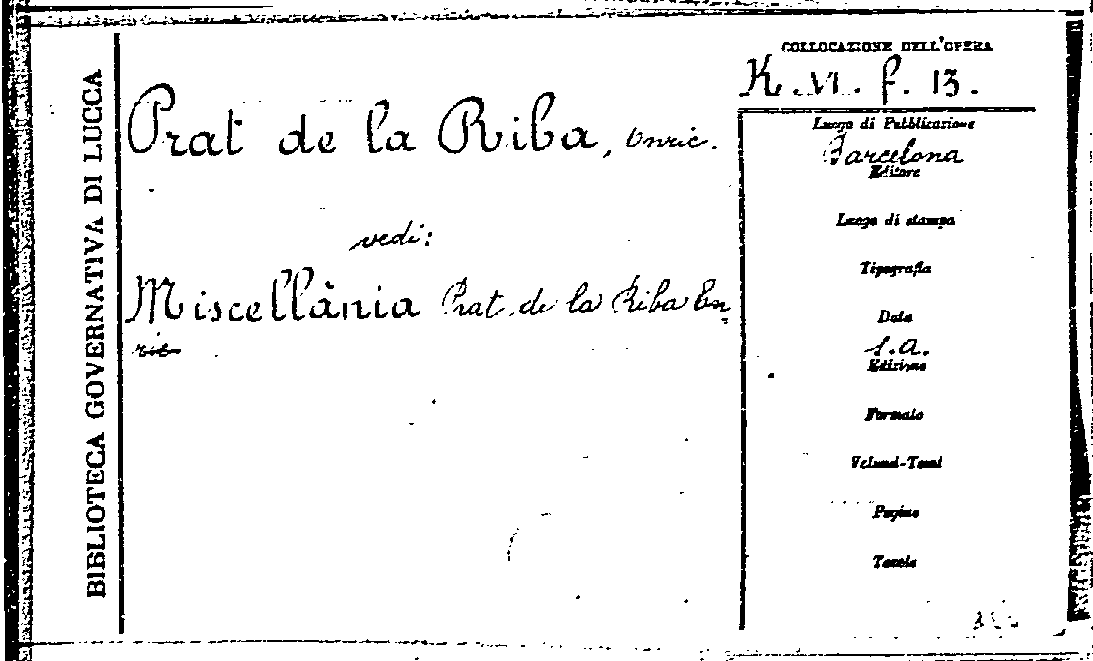 BIBLIOTECA GOVERNATIVA DI LUCCA
Prat de la Riba, Enric.
vedi:
Miscellània Prat de la Riba En=
ric
COLLOCAZIONE DELL'OPERA
K. VI. f. 13.
Luogo di Pubblicazione
Barcelona
Editore
Luogo di stampa
Tipografia
Data
s.a.
Edizione
Formato
Volumi-Tomi
Pagine
Tavole